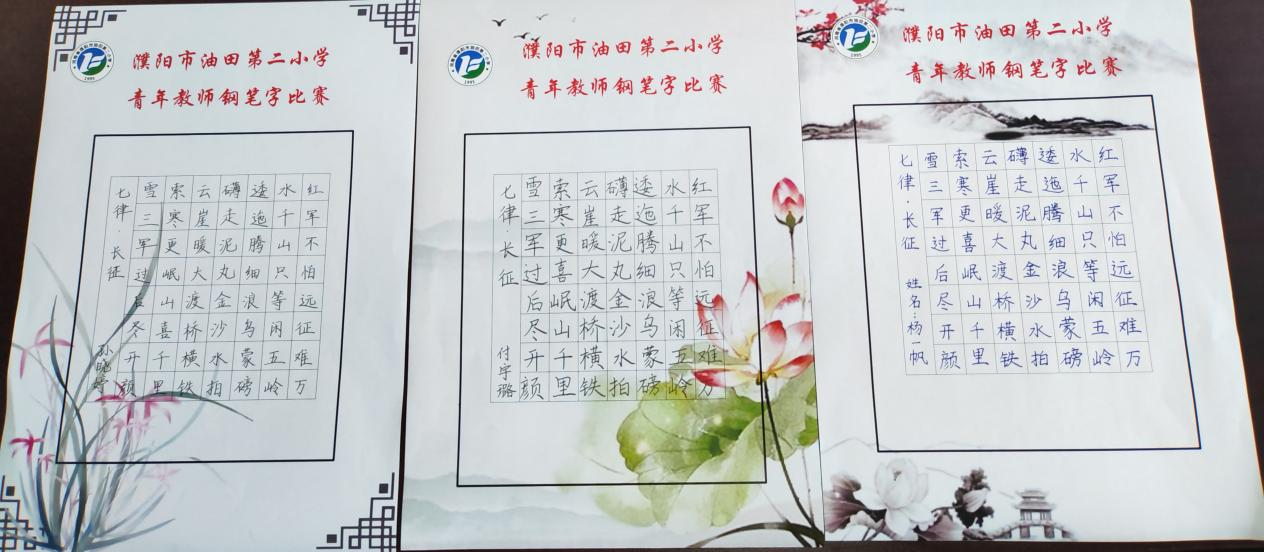 濮阳市油田第二小学
青年教师钢笔字比赛
七律·长征
红军不怕远征难万
水千山只等闲五岭
逶迤腾细浪乌蒙磅
礴走泥丸金沙水拍
云崖暖大渡桥横铁
索寒更岷山喜千里
雪三军过后尽开颜
濮阳市油田第二小学
青年教师钢笔字比赛
七律·长征
红军不怕远征难万
水千山只等闲五岭
逶迤腾细浪乌蒙磅
礴走泥丸金沙水拍
云崖暖大渡桥横铁
索寒更喜岷山千里
雪三军过后尽开颜
付宇璐
濮阳市油田第二小学
青年教师钢笔字比赛
七律·长征
红军不怕远征难万
水千山只等闲五岭
逶迤腾细浪乌蒙磅
礴走泥丸金沙水拍
云崖暖大渡桥横铁
索寒更喜岷山千里
雪三军过后尽开颜
姓名:杨一帆